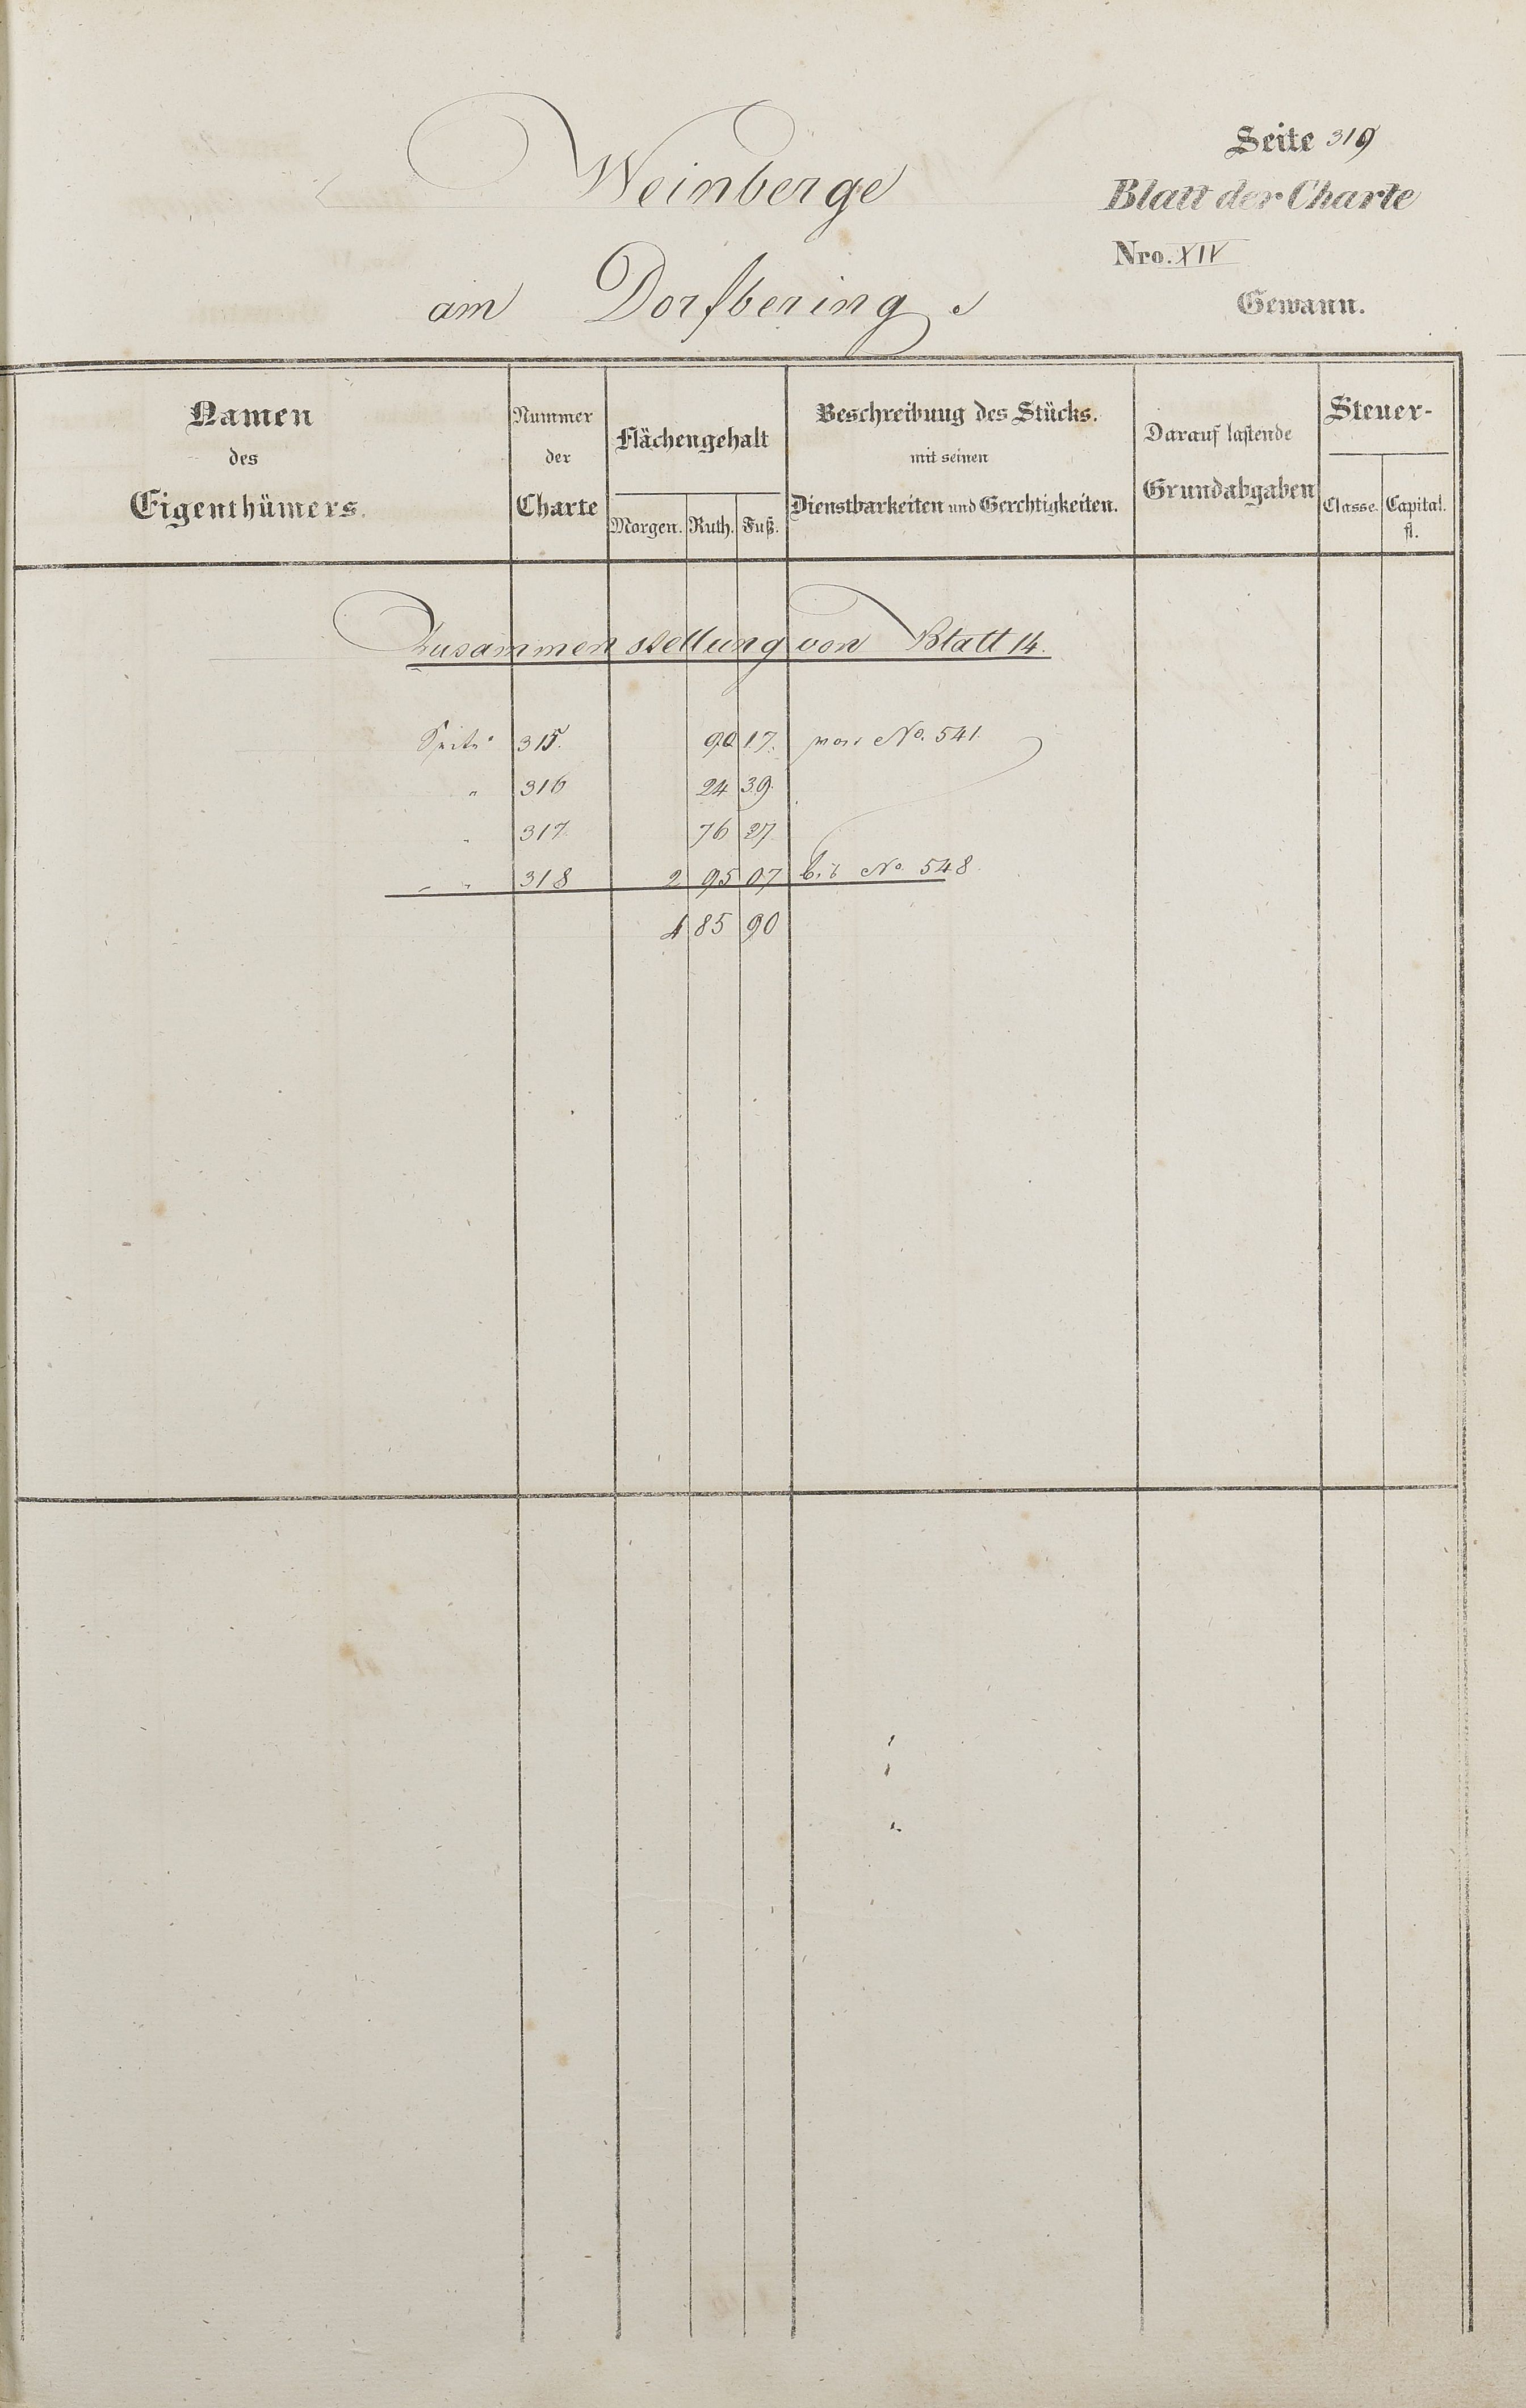 Seite 319
Weinberge
Blatt der Charte
Nro. XIV
am Dorfbering
Gewann.
Namen des Eigenthümers.
Nummer der Charte
Flächengehalt
Morgen. Ruth. Fuß.
Beschreibung des Stücks. mit seinen Dienstbarkeiten und Gerechtigkeiten.
Darauf lastende Grundabgaben
Steuer-
Classe. Capital. fl.
Zusammenstellung von Blatt 14.
Seite 315. 90 17. von No. 541.
" 316 24 39.
" 317. 76 27
" 318 2 95 07 bis No. 548.
4 85 90